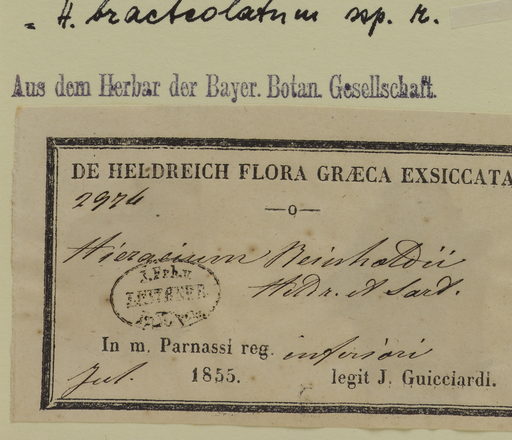 " H. bracteolatum ssp. r.
Aus dem Herbar der Bayer. Botan. Gesellschaft.
DE HELDREICH FLORA GRÆCA EXSICCATA
2974
—o—
Hieracium Reinholdii
Heldr. et Sart.
In m. Parnassi reg. inferiori
Jul. 1855. legit J. Guicciardi.